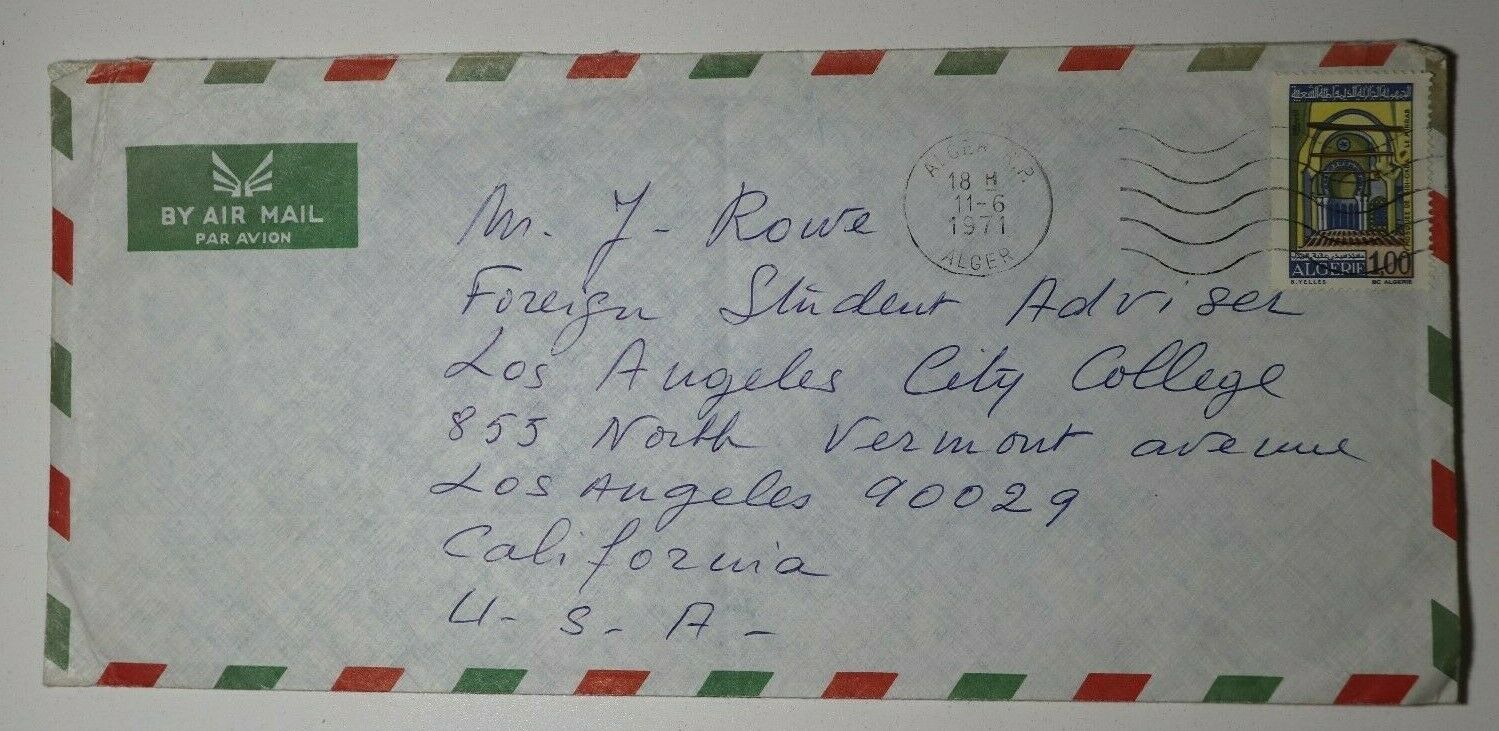 BY AIR MAIL
PAR AVION
ALGER R.P.
18 H
11-6
1971
ALGER
الجمهورية الجزائرية الديمقراطية الشعبية
LE MIHRAB
ALGERIE 1,00
B. YELLES BC ALGERIE
Mr. J - Rowe
Foreign Student Adviser
Los Angeles City College
855 North Vermont avenue
Los Angeles 90029
California
U - S - A -